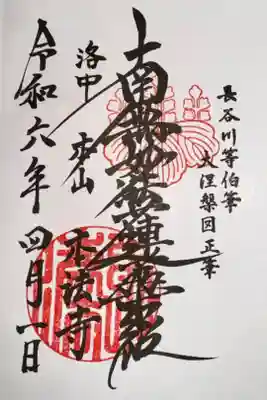 長谷川等伯筆
大涅槃図正筆
南無妙法蓮華経
洛中 本山
本法寺
令和六年 四月一日